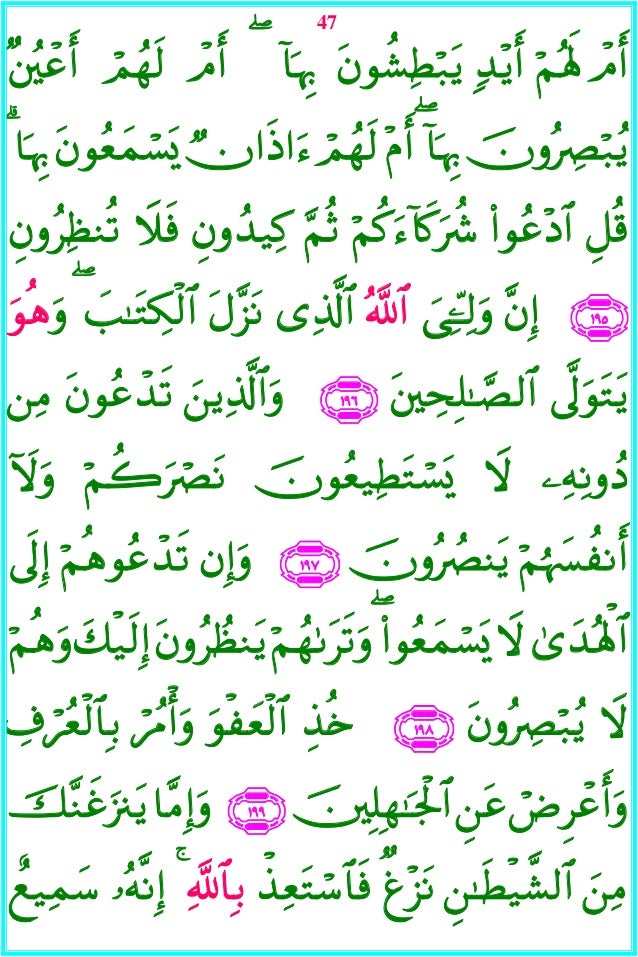 47
أَمْ لَهُمْ أَيْدٍ يَبْطِشُونَ بِهَآ ۖ أَمْ لَهُمْ أَعْيُنٌ
يُبْصِرُونَ بِهَآ ۖ أَمْ لَهُمْ ءَاذَانٌ يَسْمَعُونَ بِهَا ۗ
قُلِ ٱدْعُوا۟ شُرَكَآءَكُمْ ثُمَّ كِيدُونِ فَلَا تُنظِرُونِ
١٩٥ إِنَّ وَلِـِّۧىَ ٱللَّهُ ٱلَّذِى نَزَّلَ ٱلْكِتَـٰبَ ۖ وَهُوَ
يَتَوَلَّى ٱلصَّـٰلِحِينَ ١٩٦ وَٱلَّذِينَ تَدْعُونَ مِن
دُونِهِۦ لَا يَسْتَطِيعُونَ نَصْرَكُمْ وَلَآ
أَنفُسَهُمْ يَنصُرُونَ ١٩٧ وَإِن تَدْعُوهُمْ إِلَى
ٱلْهُدَىٰ لَا يَسْمَعُوا۟ ۖ وَتَرَىٰهُمْ يَنظُرُونَ إِلَيْكَ وَهُمْ
لَا يُبْصِرُونَ ١٩٨ خُذِ ٱلْعَفْوَ وَأْمُرْ بِٱلْعُرْفِ
وَأَعْرِضْ عَنِ ٱلْجَـٰهِلِينَ ١٩٩ وَإِمَّا يَنزَغَنَّكَ
مِنَ ٱلشَّيْطَـٰنِ نَزْغٌ فَٱسْتَعِذْ بِٱللَّهِ ۚ إِنَّهُۥ سَمِيعٌ